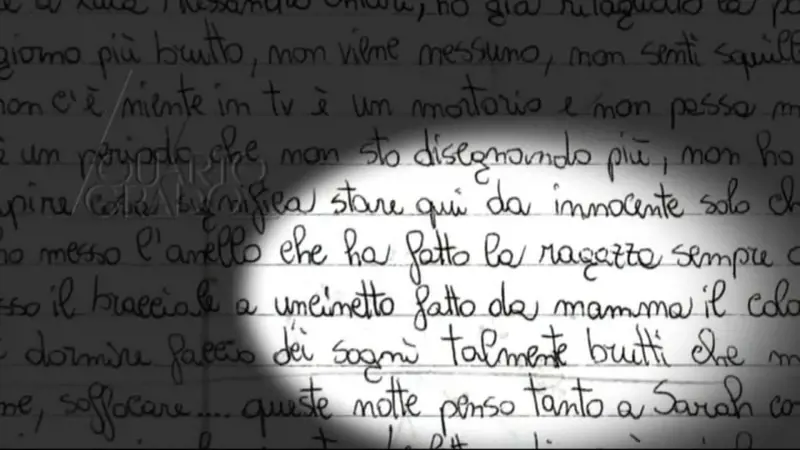 giorno più brutto, non viene nessuno, non senti squill
non c'è niente in tv è un mortorio e non passa m
è un periodo che non sto disegnando più, non ho
QUARTO
GRADO
apire cosa significa stare qui da innocente solo ch
ho messo l'anello che ha fatto la ragazza sempre
sso il bracciale a uncinetto fatto da mamma il colo
dormire faccio dei sogni talmente brutti che m
me, soffocare.... queste notte penso tanto a Sarah co